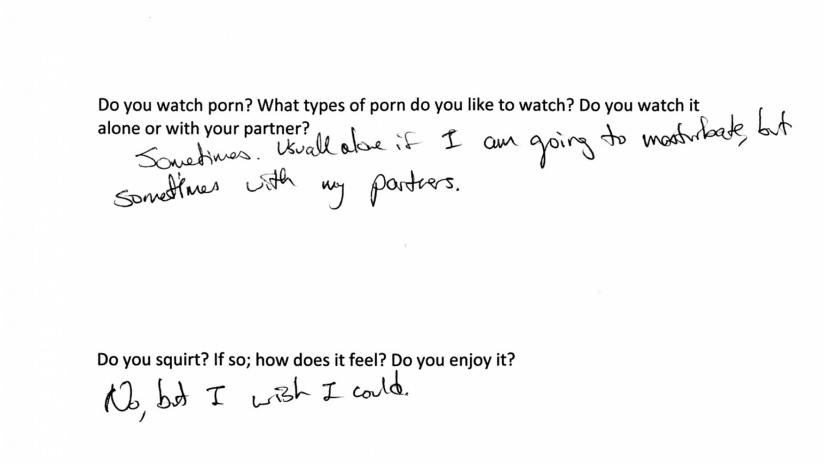 Do you watch porn? What types of porn do you like to watch? Do you watch it
alone or with your partner?
Sometimes. Usuall alone if I am going to masturbate, but
sometimes with my partners.
Do you squirt? If so; how does it feel? Do you enjoy it?
No, but I wish I could.